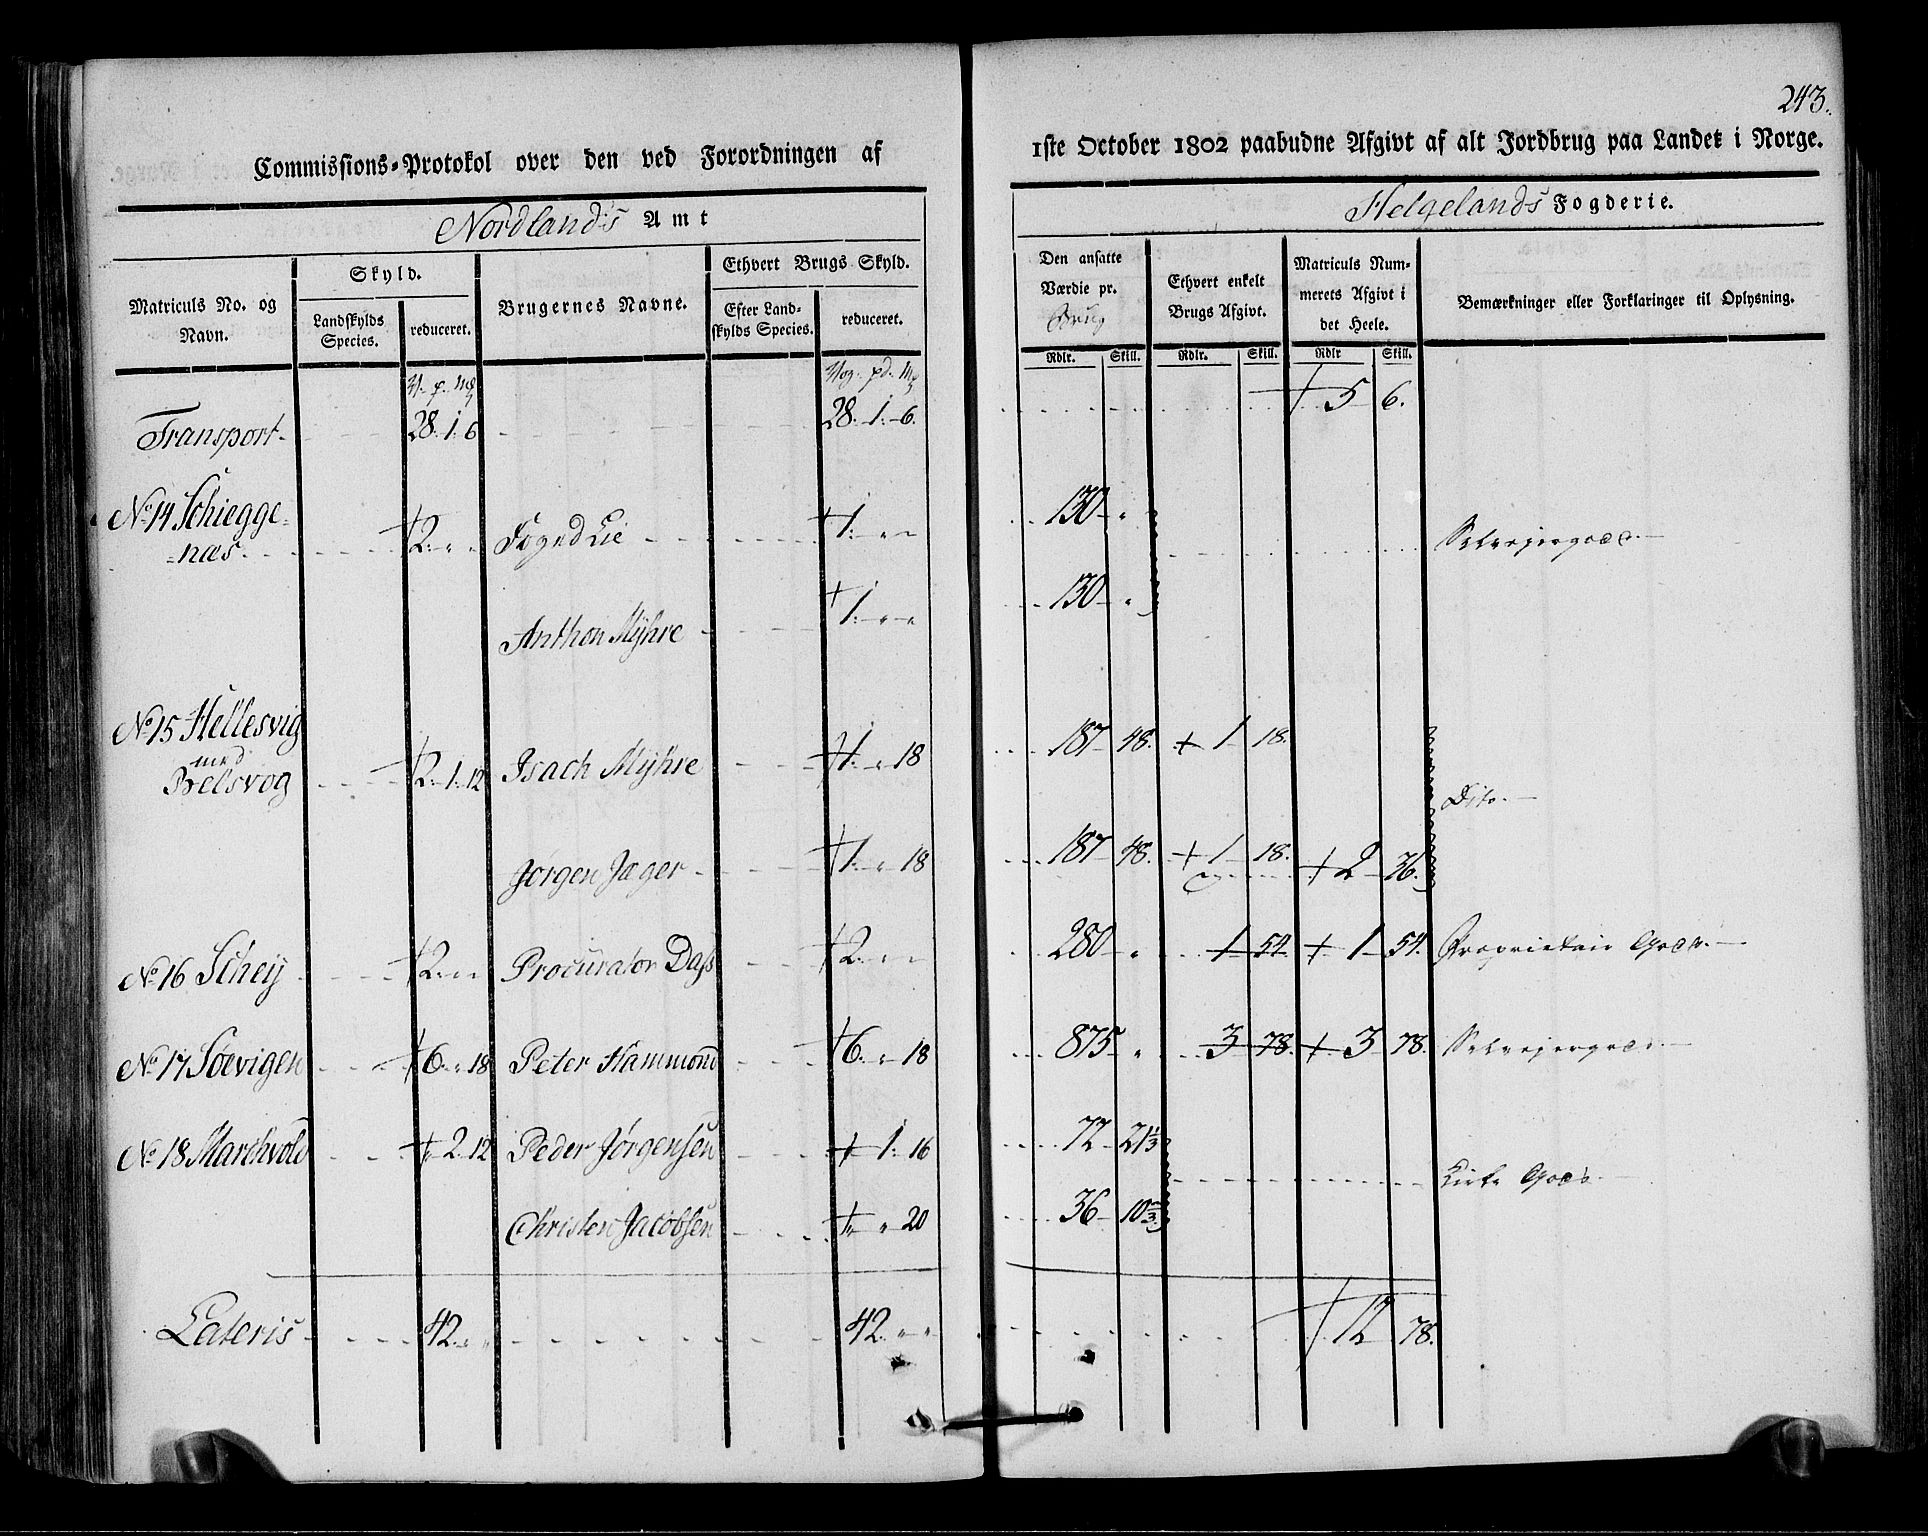 243.
Commissions-Protokol over den ved Forordningen af 1ste October 1802 paabudne Afgivt af alt Jordbrug paa Landet i Norge.
Nordland's Amt
Helgelands Fogderie.
Matriculs No. og Navn.
Skyld.
Landskylds Species.
reduceret.
Brugernes Navne.
Ethvert Brugs Skyld.
Efter Landskylds Species.
reduceret.
Den ansatte Værdie pr. Brug
Rdlr. Skill.
Ethvert enkelt Brugs Afgivt.
Rdlr. Skill.
Matriculs Nummerets Afgivt i det Heele.
Rdlr Skill.
Bemærkninger eller Forklaringer til Oplysning.
V. p. mg
Vog. pd. Mg
Transport 28. 1. 6 28. 1. 6. 5 6.
No 14 Schieggenæs 2. " " Foged Lie 1. " " 130 " Selvejergods.
Anthon Myhre 1. " " 130 "
No 15 Hellesvig
med
Belsvog 2. 1. 12 Isach Myhre 1. " 18 187 48. 1 18. Dito.
Jørgen Jæger 1. " 18 187 48. 1 18. 2 36.
No 16 Schey 2. " " Procurator Dass 2. " " 280 " 1 54 1 54. Proprietair Gods.
No 17 Søevigen 6. " 18 Peter Hammond 6. " 18 875 " 3 78. 3 78. Selvejergods.
No 18 Marchvold " 2 12 Peder Jørgensen 1. 16 72 21 1/3 Kirke Gods.
Christen Jacobsen " " 20 36 10 2/3
Lateris 42. " " 42. " " 12 78.